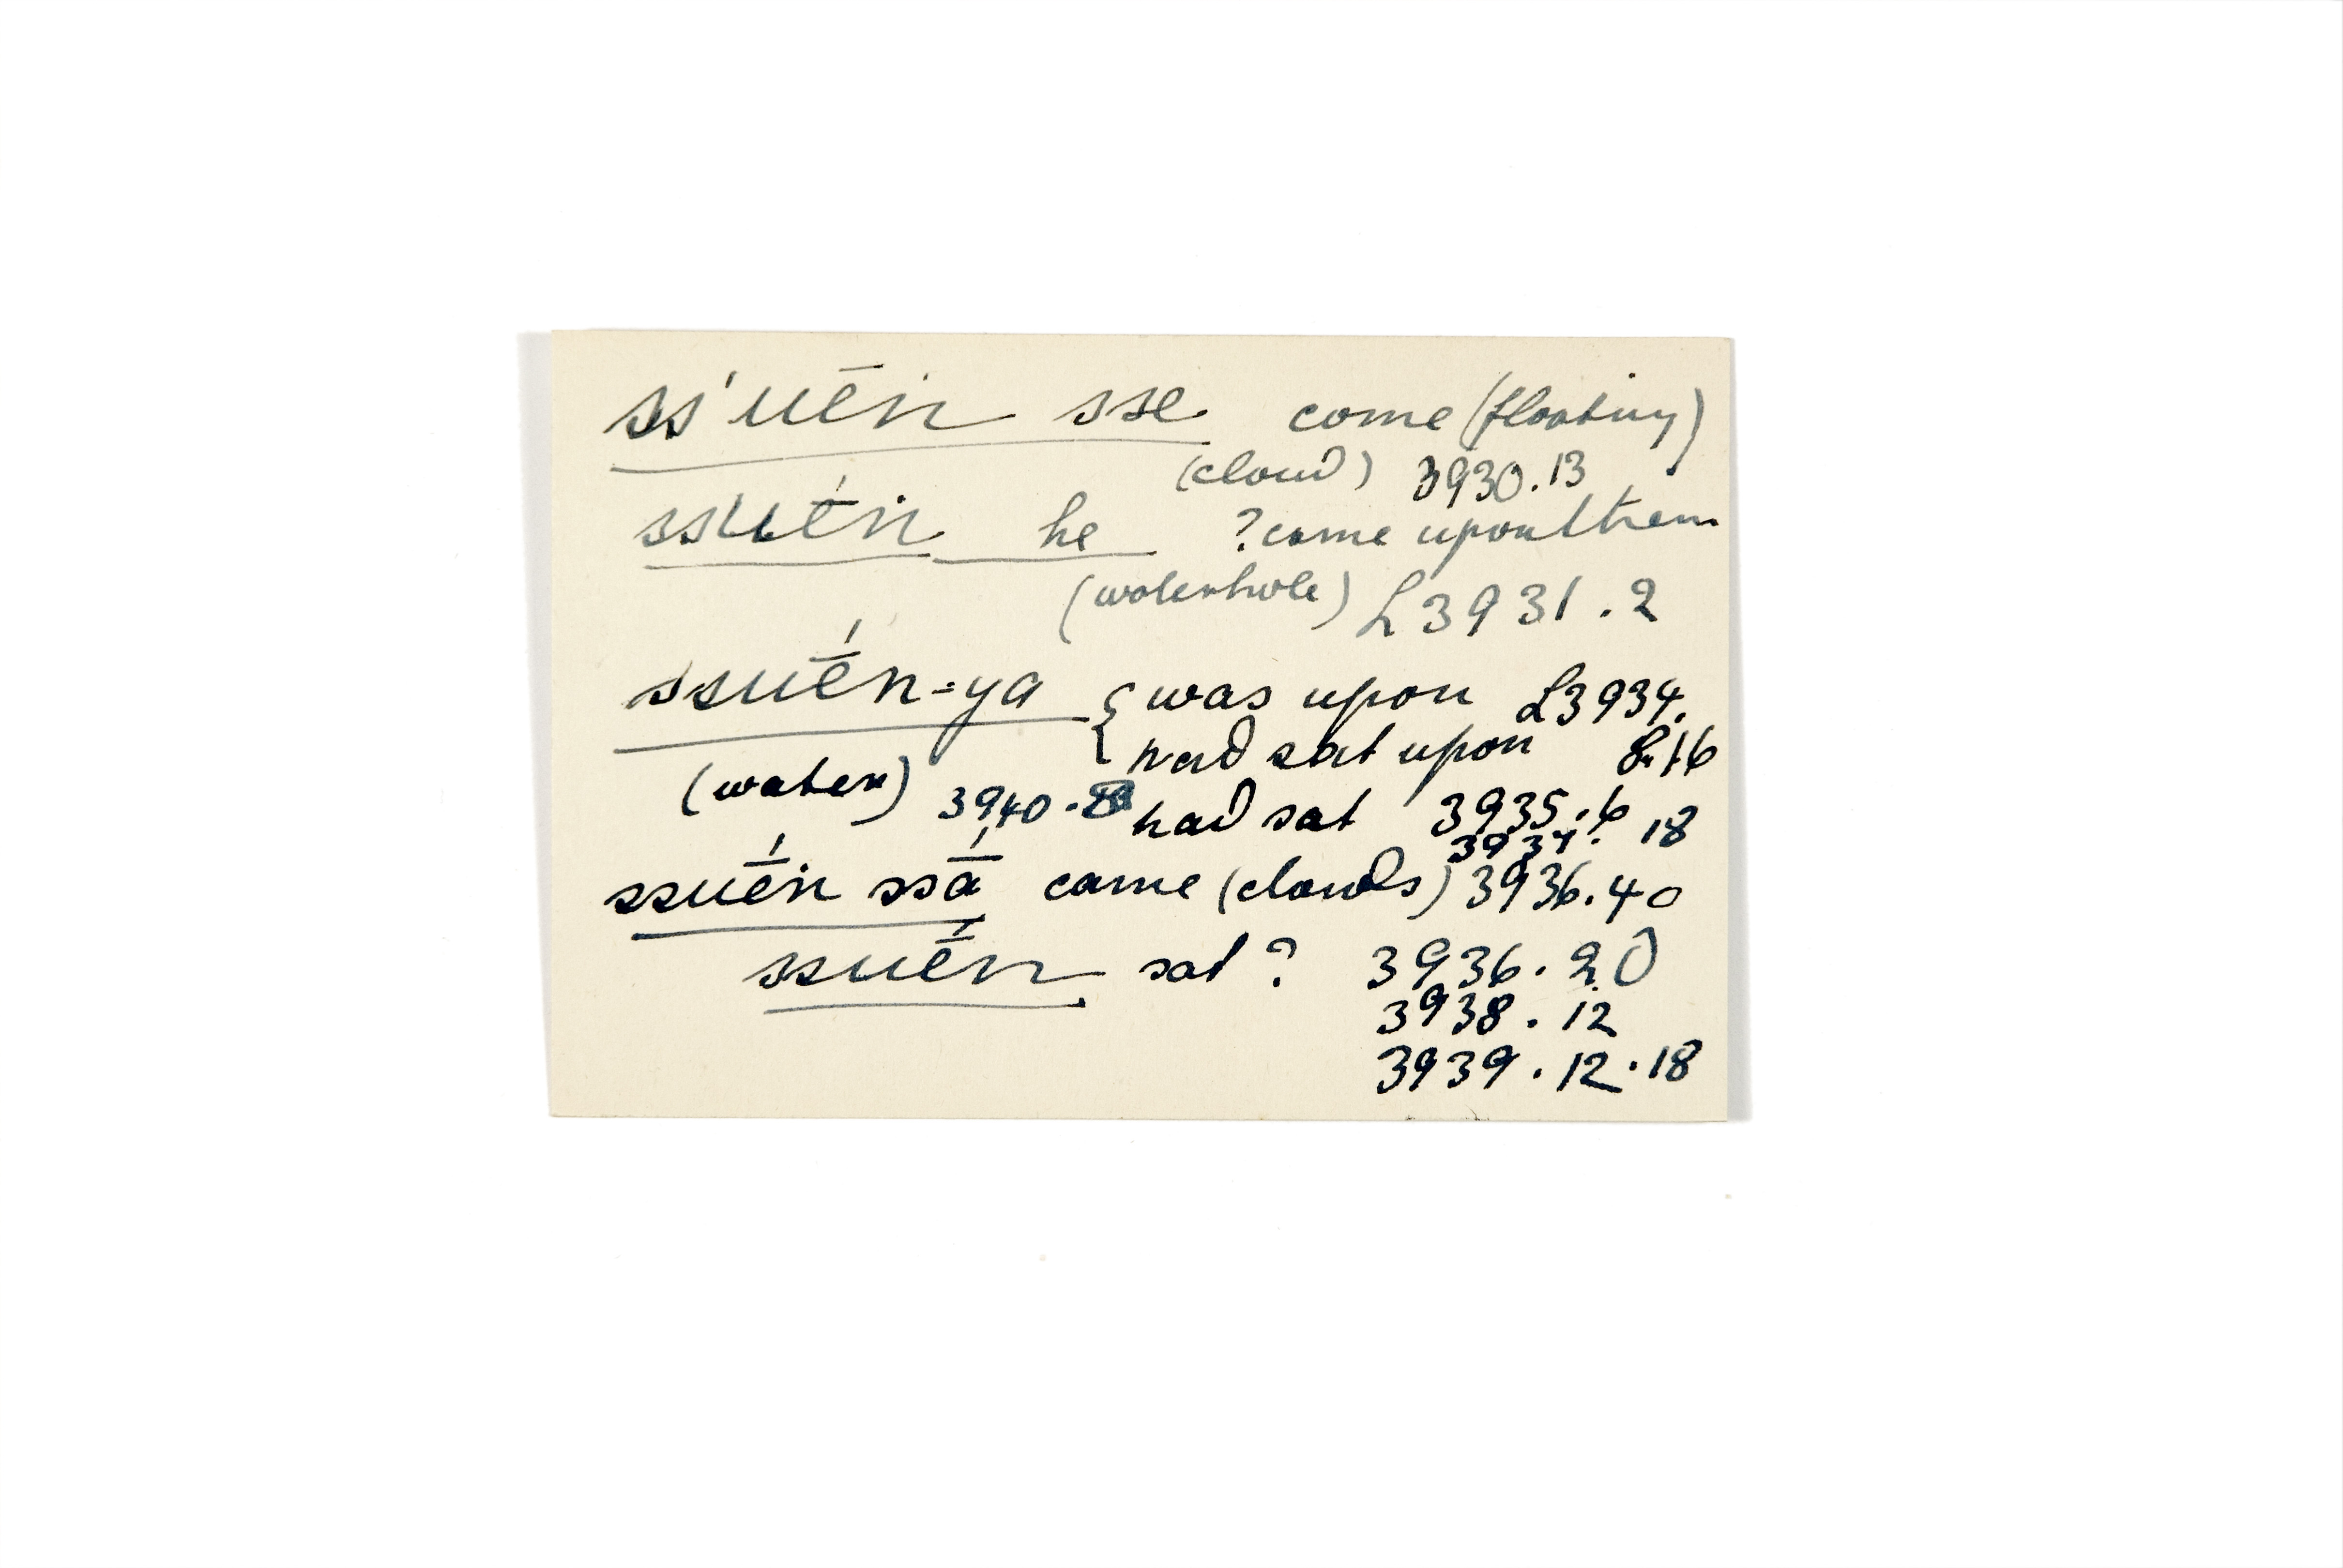 ss'uēn sse come (floating)
(cloud) 3930.13
ssuḗn he ?came upon them
(waterhole) L3931.2
ssuḗn-ya { was upon L3934.
had sat upon 8.16
(water) 3940. had sat 3935.6
3937. 18
ssuḗn ssā́ came (clouds) 3936.40
ssuḗn sat? 3936.20
3938.12
3939.12.18